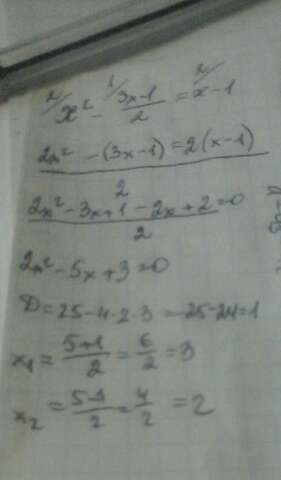 2/ x² - 1/ (3x-1)/2 = 2/ x-1
(2x² - (3x-1) = 2(x-1))/2
(2x² - 3x + 1 - 2x + 2)/2 = 0
2x² - 5x + 3 = 0
D = 25 - 4·2·3 = 25-24 = 1
x₁ = (5+1)/2 = 6/2 = 3
x₂ = (5-1)/2 = 4/2 = 2